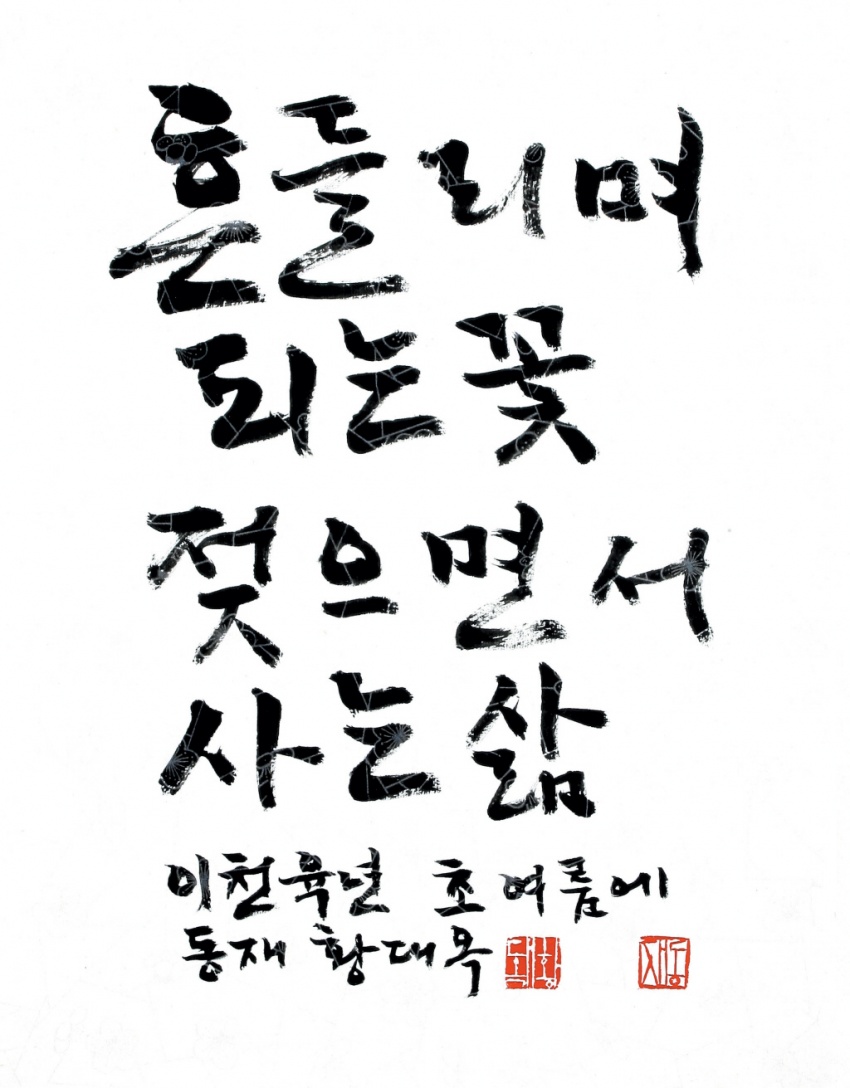 흔들리며
되는 꽃
젖으면서
사는 삶
이천육년 초여름에
동재 황대욱
동재